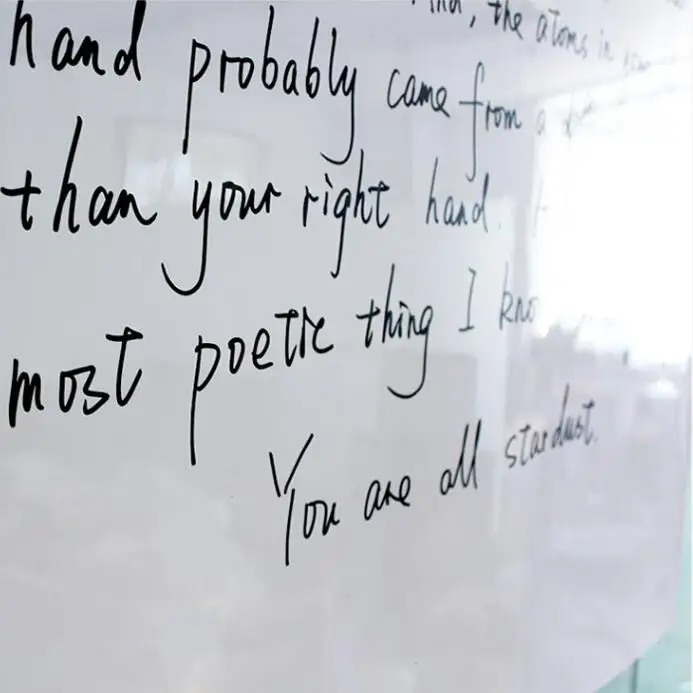 , the atoms in
hand probably came from a
than your right hand.
most poetic thing I
You are all stardust.